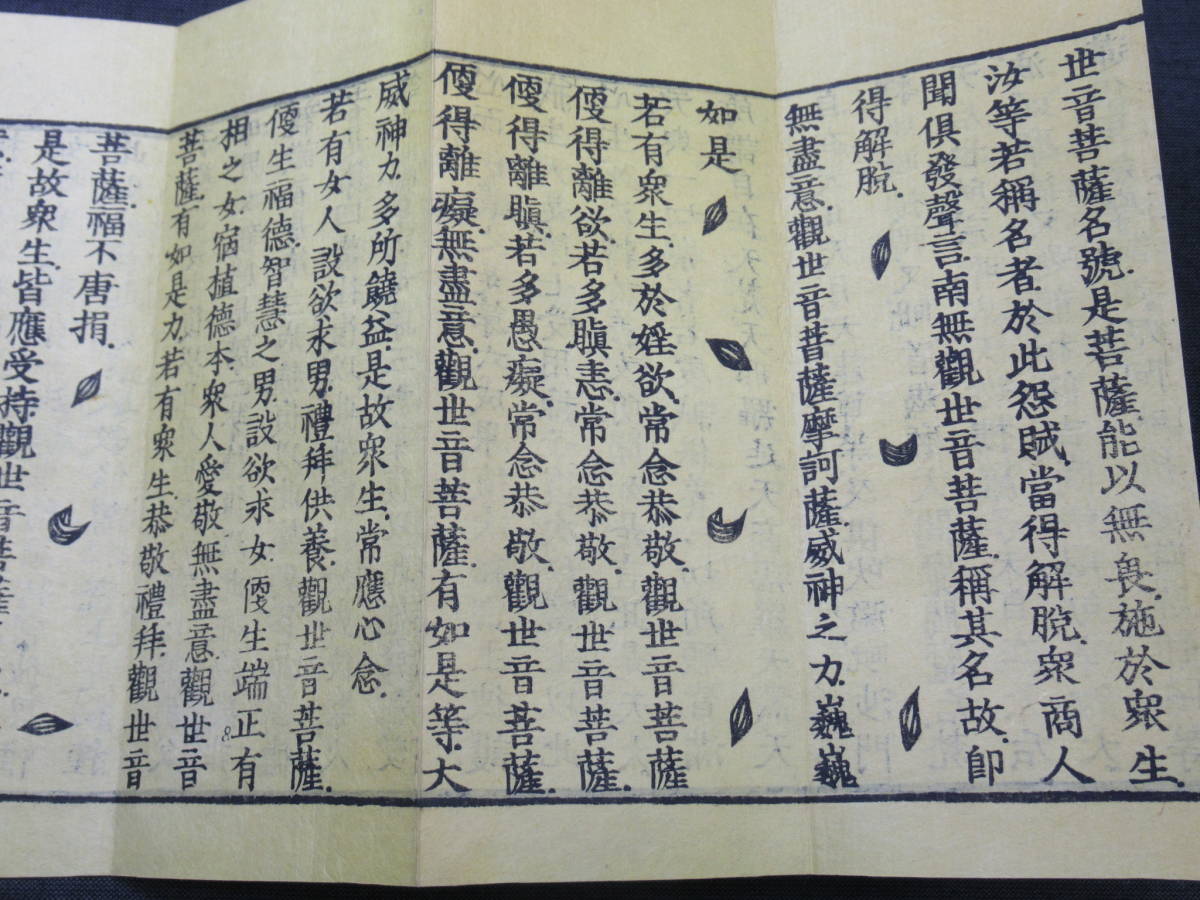 世音菩薩名號.是菩薩.能以無畏.施於眾生.
汝等若稱名者於此怨賊.當得解脫.眾商人
聞俱發聲言.南無觀世音菩薩.稱其名故.即
得解脫.
無盡意.觀世音菩薩摩訶薩威神之力.巍巍
如是
若有眾生.多於婬欲.常念恭敬.觀世音菩薩
便得離欲.若多瞋恚.常念恭敬.觀世音菩薩.
便得離瞋.若多愚癡.常念恭敬.觀世音菩薩.
便得離癡.無盡意.觀世音菩薩.有如是等.大
威神力.多所饒益.是故眾生.常應心念.
若有女人設欲求男.禮拜供養.觀世音菩薩.
便生福德.智慧之男.設欲求女.便生端正有
相之女.宿植德本.眾人愛敬.無盡意.觀世音
菩薩.有如是力.若有眾生.恭敬禮拜.觀世音
菩薩.福不唐捐.
是故眾生.皆應受持.觀世音菩薩